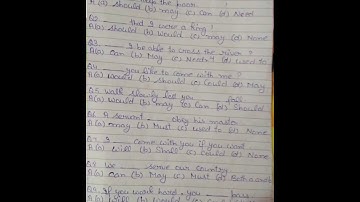 help the poor.
A (a) Should (b) may (c) Can (d) Need
that I were a king!
A (a) Should (b) would (c) may (d) None
Q3. I be able to cross the river?
A (a) Can (b) May (c) Need (d) used to
Q4. you like to come with me?
A (a) Would (b) Should (c) Could (d) May
Q5 Walk slowly lest you fall
A (a) Would (b) may (c) Can (d) Should
Q6 A servant obey his master
A (a) may (b) Must (c) used to (d) None
Q7 I come with you if you want
A (a) Will (b) Shall (c) Could (d) Name
Q8 We serve our country
A (a) Can (b) May (c) Must (d)
Q9 If you work hard, you pass.
A (a) Will (b) Would